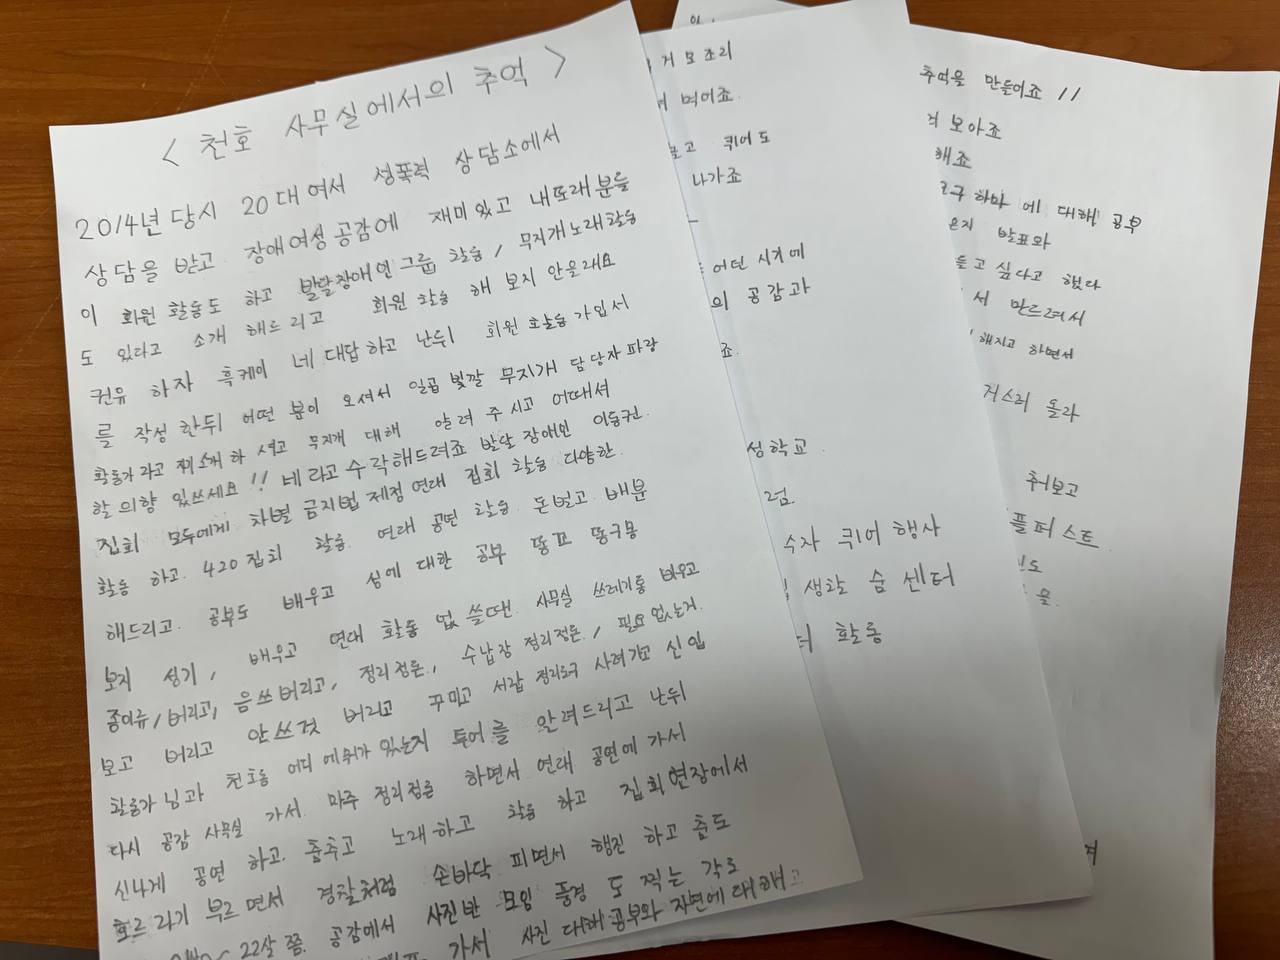 < 천호 사무실에서의 추억 >
2014년 당시 20대여서 성폭력 상담소에서
상담을 받고 장애여성공감에 재미있고 내또래분들
이 회원 활동도 하고 발달장애인그룹 활동, 무지개노래활동
도 있다고 소개 해드리고 회원 활동 해 보지 안을래요
권유 하자 흑케이 네 대답하고 난뒤 회원 활동가입서
를 작성 한뒤 어떤 분이 오셔서 일곱 빛깔 무지개 담당자 파랑
활동가라고 하셔고 무지개 대해 알려 주시고 어때셔
할의향 있쓰세요!! 네라고 수락해드려죠 발달 장애인 이동권.
집회 모두에게 차별 금지법 제정 연대 집회 활동 다양한
활동 하고. 420 집회 활동. 연대 공연 활동. 돈벌고 배분
해드리고. 공부도 배우고 성에 대한 공부 똥꼬 똥구뭉
보지 성기, 배우고 연대 활동 없쓸때. 사무실 쓰레기통 비우고
종이류, 버리고, 음쓰버리고, 정리정돈., 수납장 정리정돈., 필요없는거.
보고 버리고 안쓰것 버리고 꾸미고 서랍 정리도구 사려가고 신입
활동가 님과 천호동 어디 에 뭐가 있는지 투어를 알려드리고 난뒤
다시 공감 사무실 가서. 마주 정리정돈 하면서 연대 공연에 가서
신나게 공연 하고. 춤추고 노래하고 활동 하고 집회현장에서
호르라기 부르면서 경찰처럼 손바닥 피면서 행진 하고 춤도
22살 쯤. 공감에서 사진반 모임 풍경 도 찍는 각도
가서 사진 대해공부와 자연에 대해고
거 모조리
먹어죠.
고 퀴어도
나가죠
어떤 시기에
의 공감과
죠.
성학교.
럼.
수자 퀴어 행사
생활 숨 센터
터 활동
추억을 만들어죠 !!
려 보아죠
해죠
도구 하나 에 대해 공부
은지 발표와
듣고 싶다고 했다
서 만드려서
해지고 하면서
거스러 올라
춰보고
플퍼스트.
도
을.
여